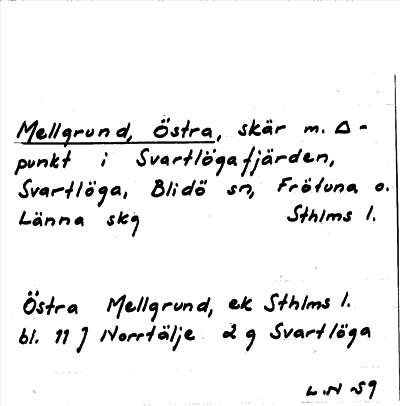 Mellgrund, Östra, skär m. △-
punkt i Svartlögafjärden,
Svartlöga, Blidö sn, Frötuna o.
Länna skg Sthlms l.
Östra Mellgrund, ek Sthlms l.
bl. 11 J Norrtälje 2 g Svartlöga
L.N 59